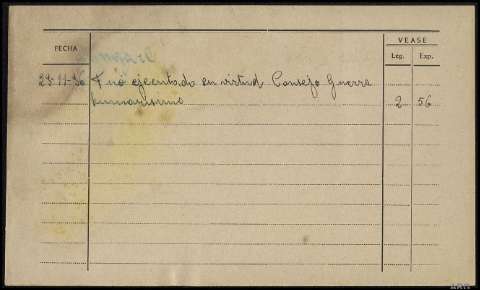 FECHA
VEASE
Leg. Exp.
28-11-36 Fué ejecutado en virtud Consejo Guerra
sumarisimo 2 56